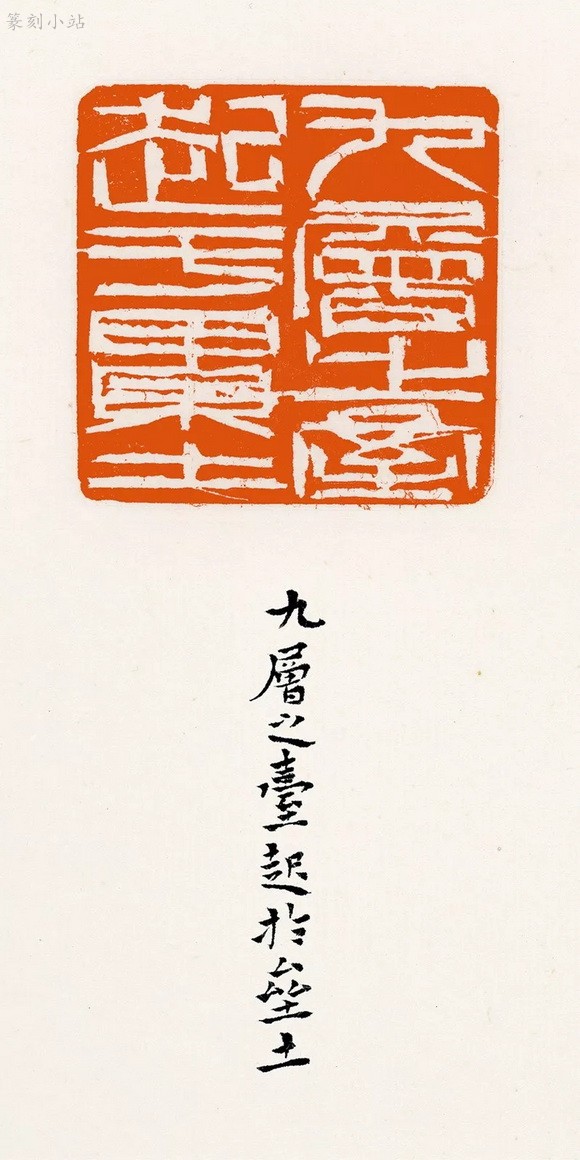 篆刻小站
九層之臺
起于累土
九層之臺起於垒土